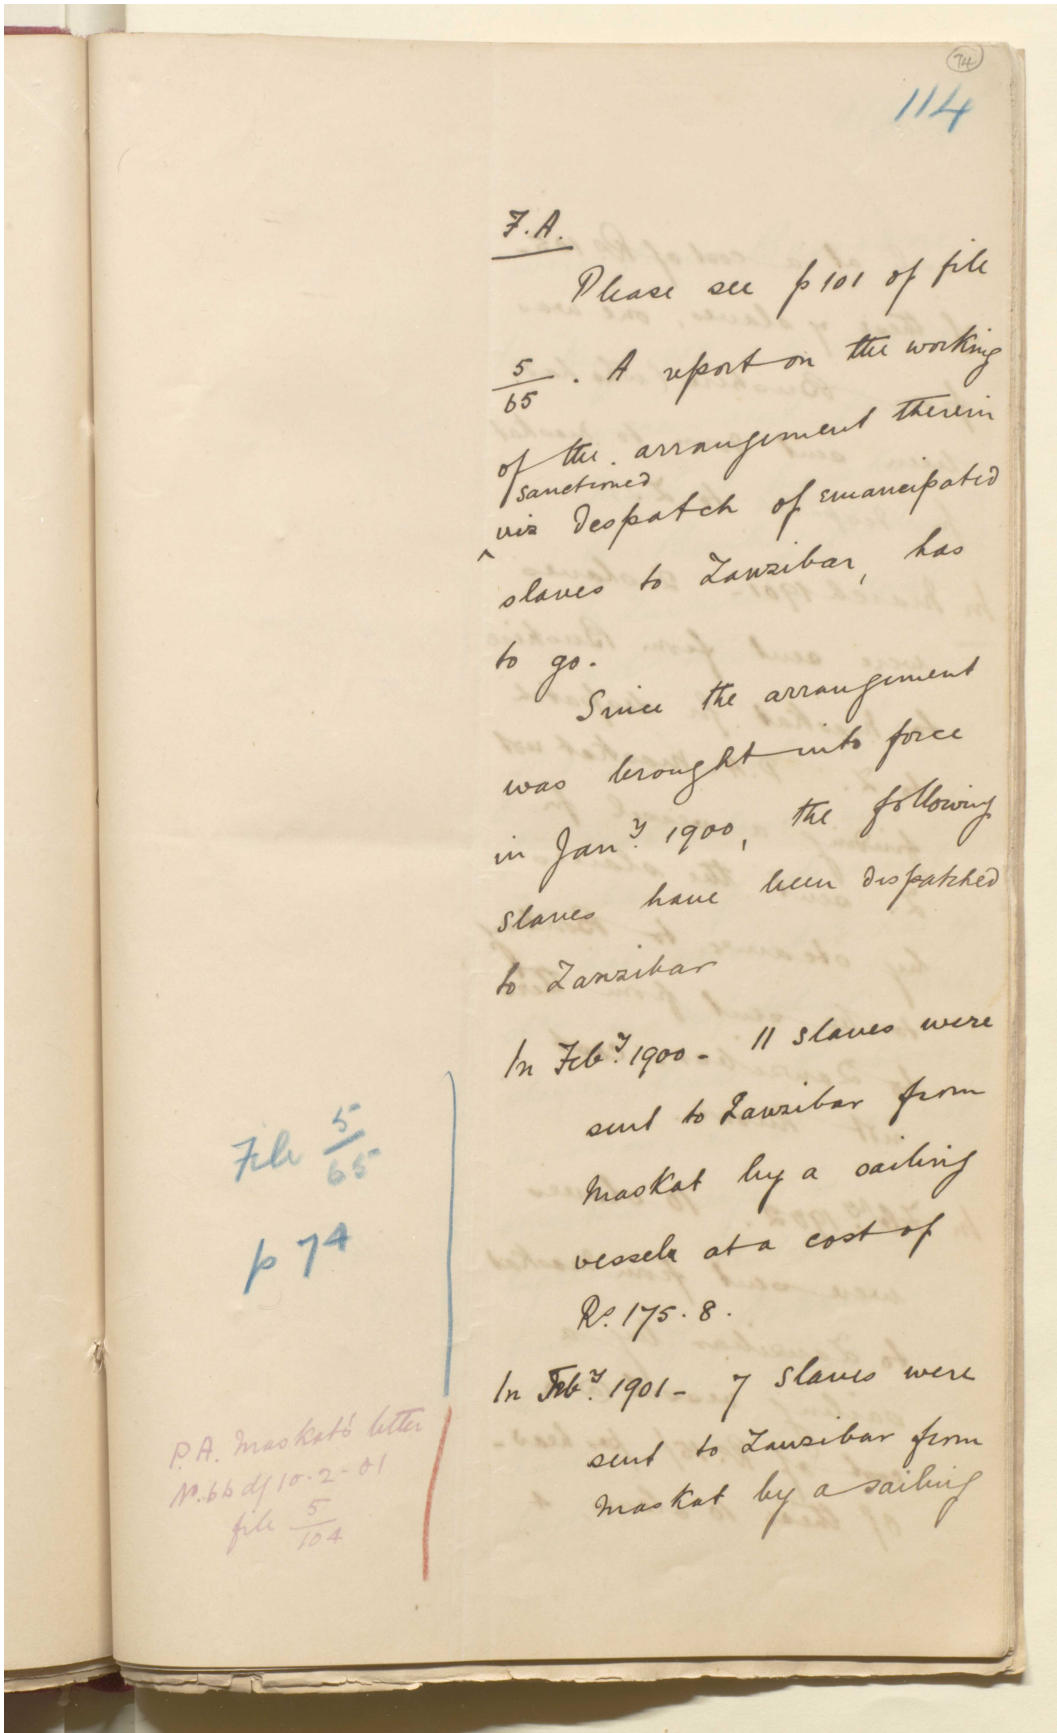 74
114
F.A.
Please see p 101 of file
5/65. A report on the working
of the arrangement therein
sanctioned
viz despatch of emancipated
slaves to Zanzibar, has
to go.
Since the arrangement
was brought into force
in Jany. 1900, the following
slaves have been dispatched
to Zanzibar
In Feby. 1900 - 11 slaves were
sent to Zanzibar from
Maskat by a sailing
vessel at a cost of
Rs. 175.8.
File 5/65
p 74
In Feby. 1901 - 7 slaves were
sent to Zanzibar from
Maskat by a sailing
P.A. Maskat's letter
No. 66 d/ 10-2-01
file 5/104